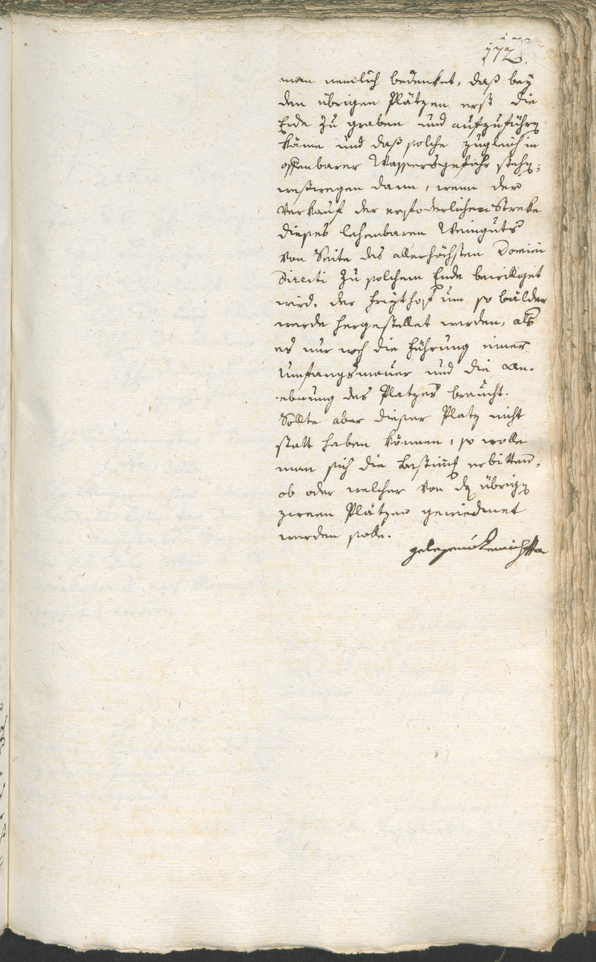 172.
man nemlich bedenket, daß bey
den übrigen Plätzen erst die
Erde zu graben und aufzuführen
käme und daß solche zugleich in
offenbarer Wassersgefahr stehn;
weßwegen dann, wenn der
Verkauf der erfoderlichen Streke
dieses lehenbaren Weinguts
von Seite des allerhöchsten Domini
Directi zu solchem Ende bewilliget
wird, der Freythof um so bälder
werde hergestellet werden, als
es nur noch die Führung einer
Umfangsmauer und die An-
ebnung des Platzes braucht.
Sollte aber dieser Platz nicht
statt haben können, so wolle
man sich die erbitten,
ob oder welcher von den übrigen
zween Plätzen gewiedmet
werden solle.